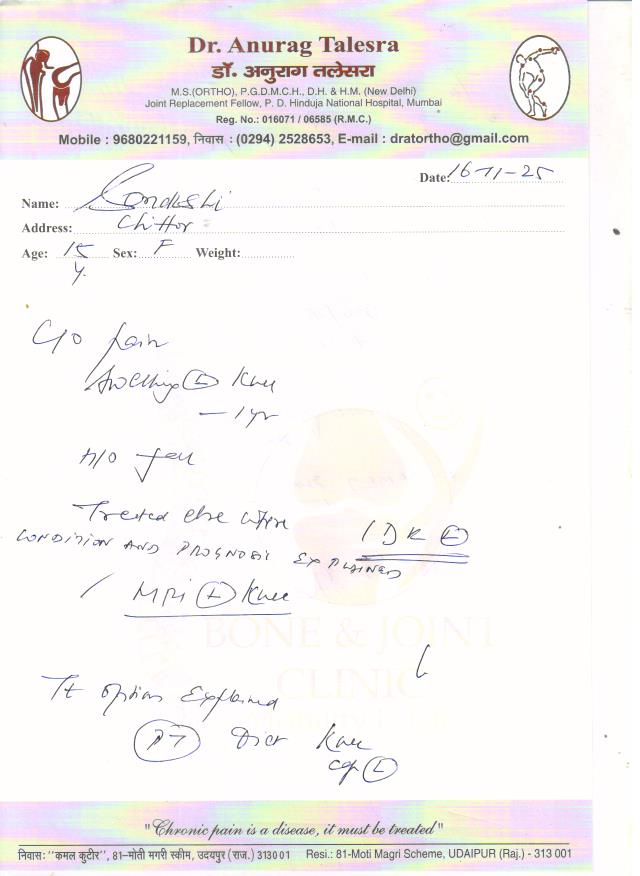 Dr. Anurag Talesra
डॉ. अनुराग तलेसरा
M.S.(ORTHO), P.G.D.M.C.H., D.H. & H.M. (New Delhi)
Joint Replacement Fellow, P. D. Hinduja National Hospital, Mumbai
Reg. No.: 016071 / 06585 (R.M.C.)
Mobile : 9680221159, निवास : (0294) 2528653, E-mail : dratortho@gmail.com
Date: 16-11-25
Name:
Address: Chittor
Age: 15 y. Sex: F Weight:
C/o pain
swelling (L) Knee
- 1 yr
H/O fall
Treated else where
IDK (L)
CONDITION AND PROGNOSIS EXPLAINED
MRI (L) Knee
BONE & JOINT
CLINIC
Tt options Explained
Knee
cap (L)
"Chronic pain is a disease, it must be treated"
निवास: "कमल कुटीर", 81-मोती मगरी स्कीम, उदयपुर (राज.) 313001 Resi.: 81-Moti Magri Scheme, UDAIPUR (Raj.) - 313 001